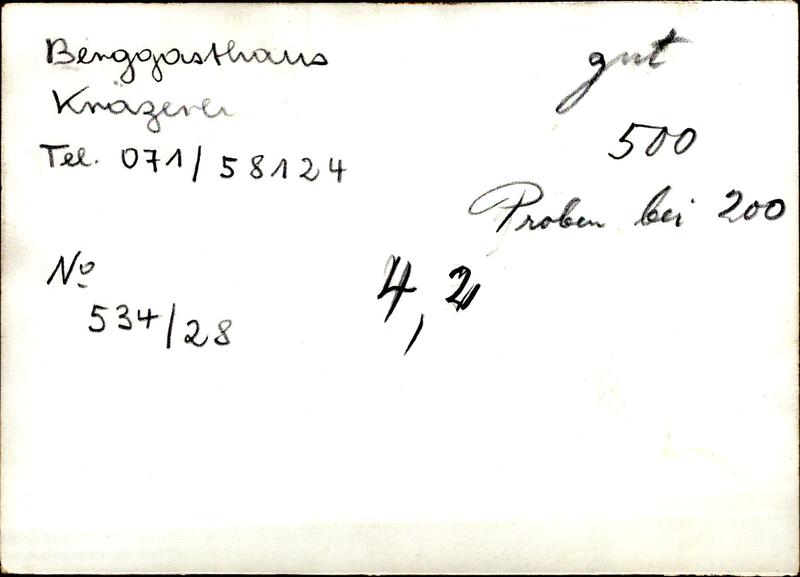 Berggasthaus
Kräzerei
Tel. 071/58124
No
534/28
gut
500
Proben bei 200
4,2